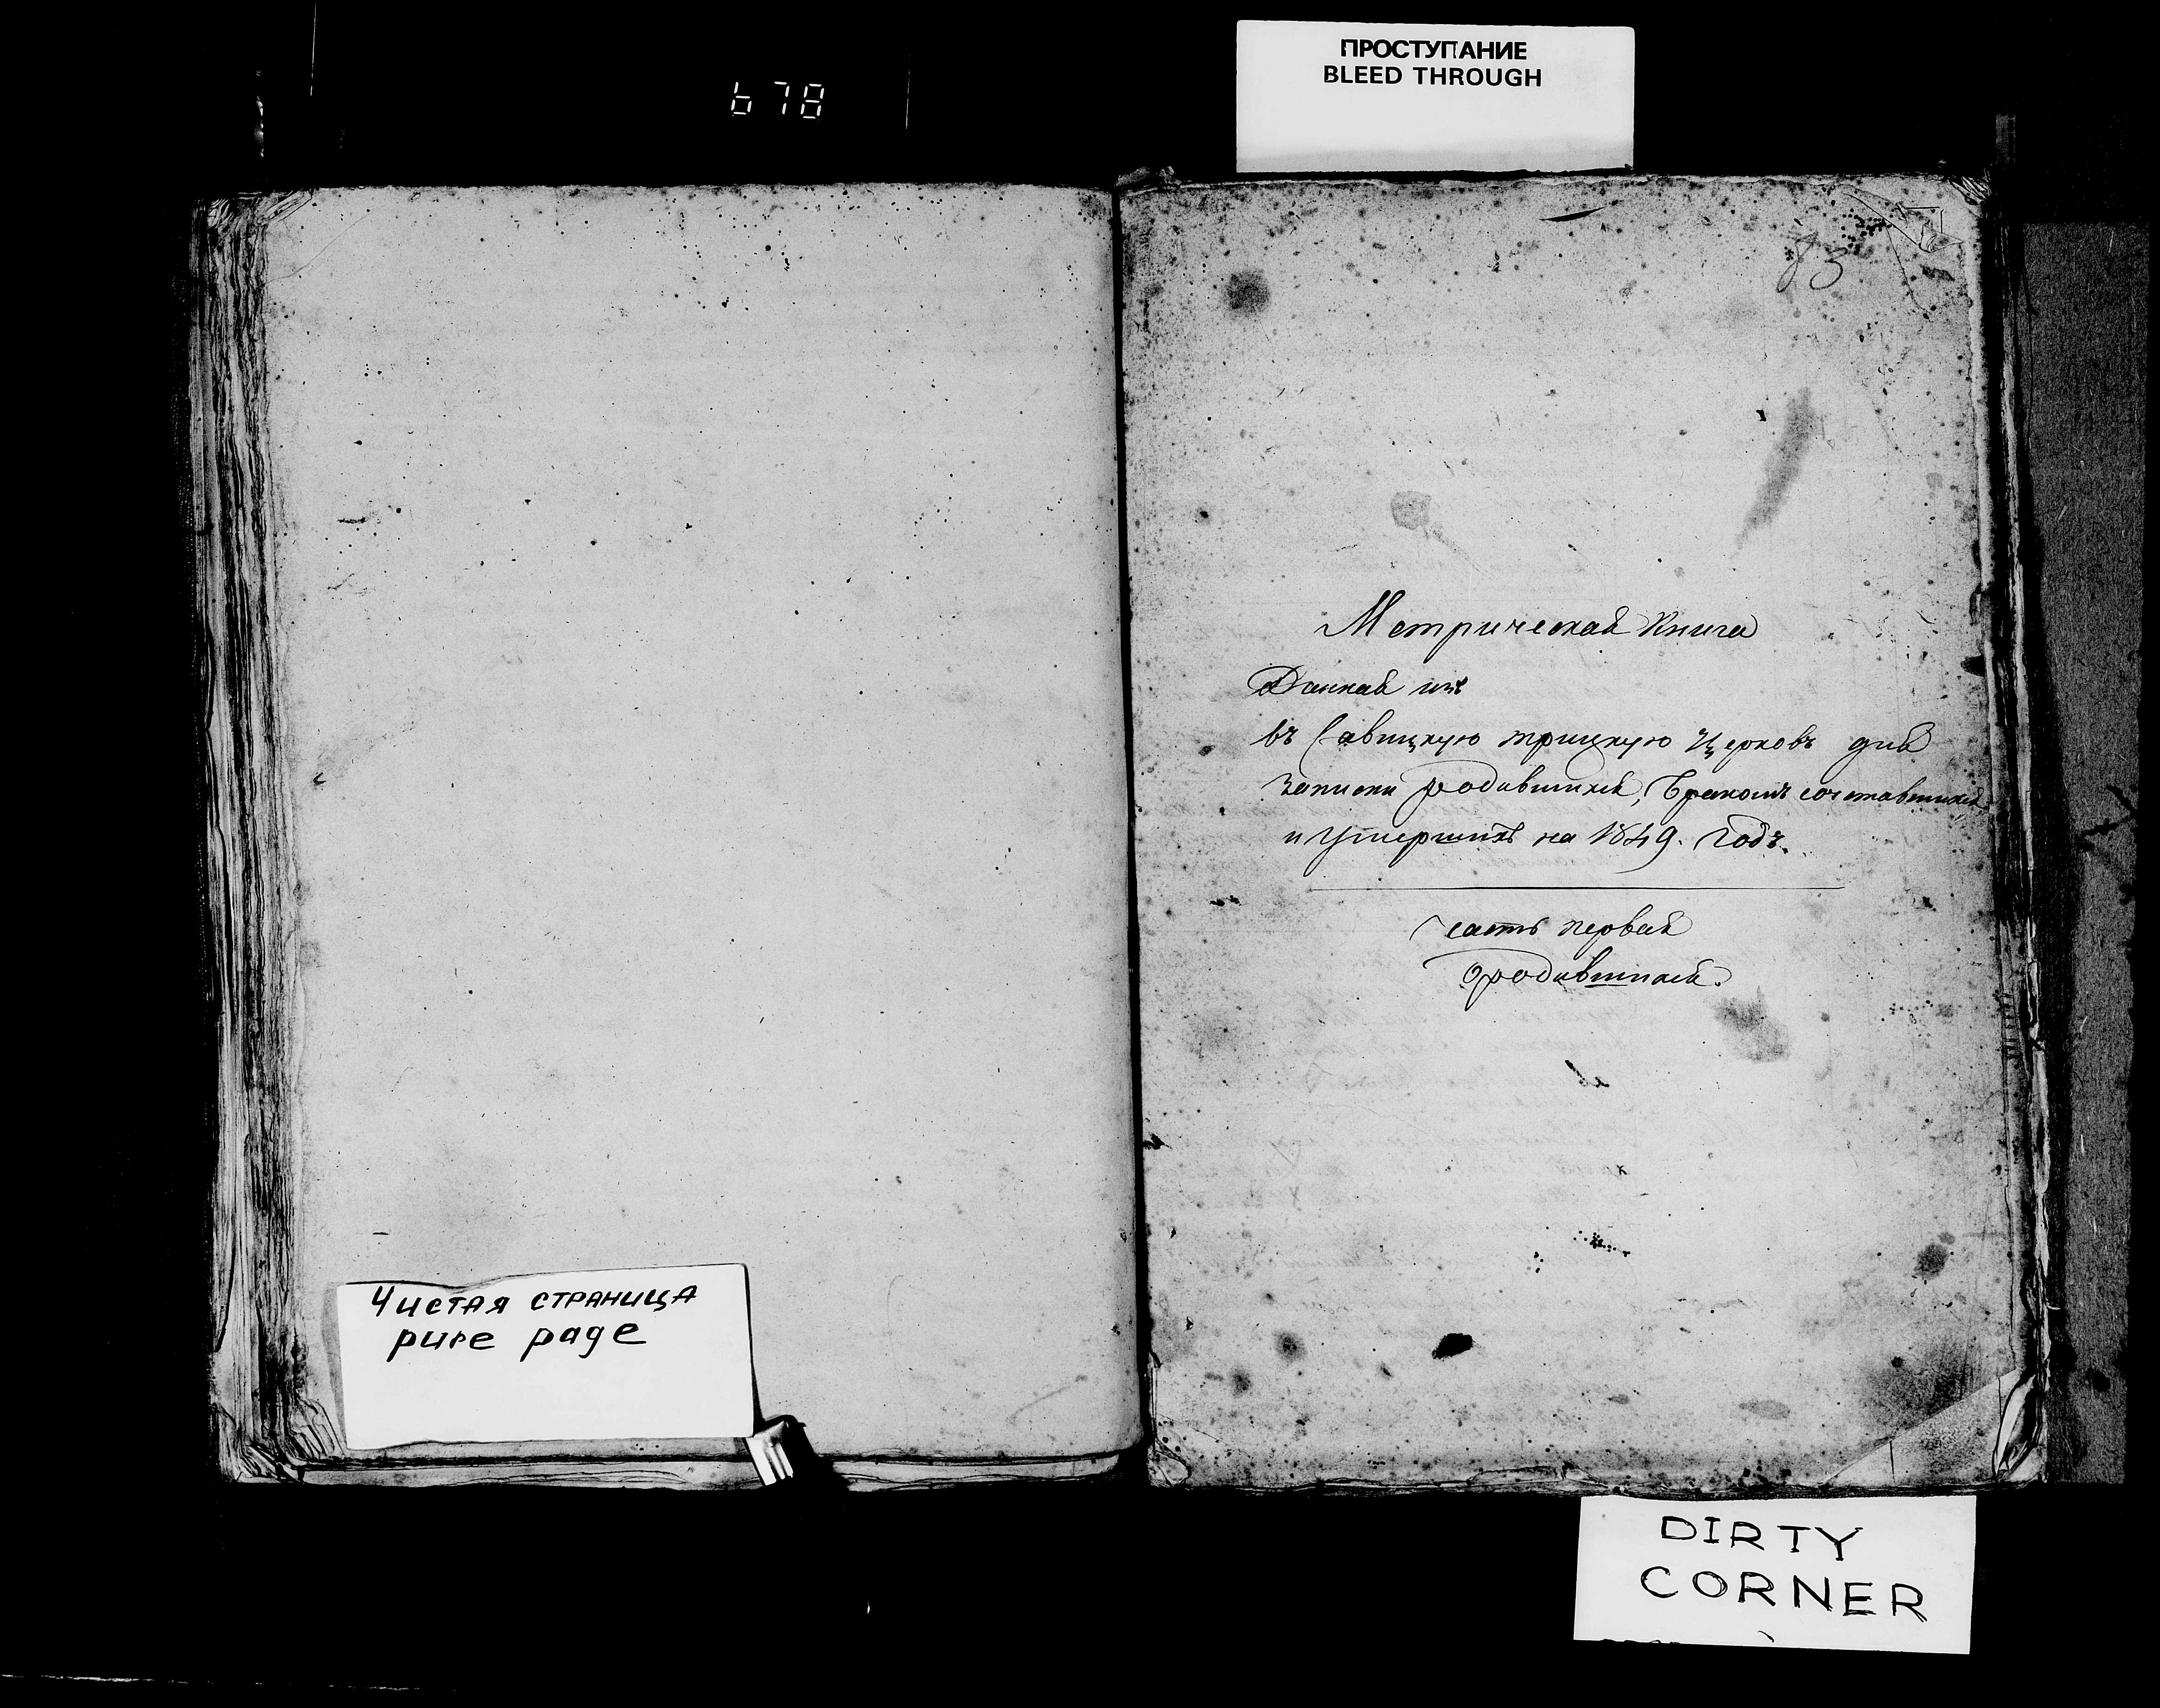 678
ПРОСТУПАНИЕ
BLEED THROUGH
83
Метрическая книга
Данная изъ
въ Савицкую трицкую Церковъ для
записки родившихся, Бракомъ сочетавшихся
и Умершихъ на 1849. Годъ.
часть первая
о родившихся.
Чистая страница
pure page
DIRTY
CORNER